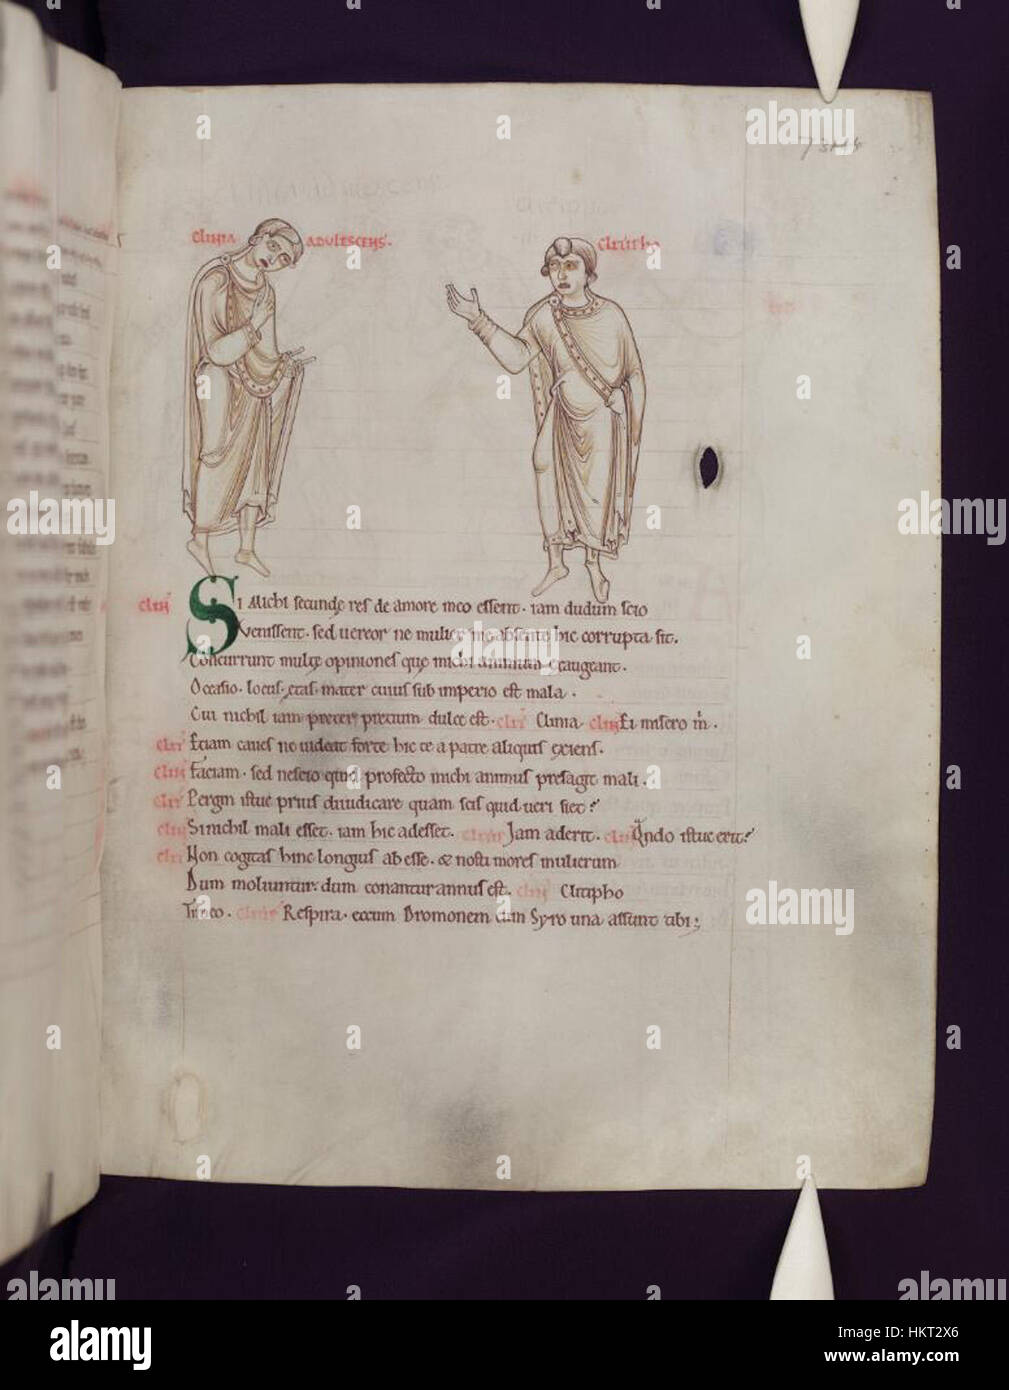 CLINIA ADULESCENS.
Si michi secunde res de amore meo essent. iam dudum scio
venissent. sed vereor ne mulier me absente hic corrupta sit.
Concurrunt multe opiniones que michi animum exaugeant.
Occasio. locus. etas. mater cuius sub imperio est mala.
Cui nichil iam preter precium dulce est. clit Clinia. clin Ei misero m.
clit Etiam caves ne videat forte hic te a patre aliquis exiens.
clin Faciam. sed nescio quid profecto michi animus presagit mali.
clit Pergin istuc prius diiudicare quam scis quid veri siet?
clin Si nichil mali esset. iam hic adesset. Jam aderit. Qndo istuc erit?
clit Non cogitas hinc longius abesse. & nosti mores mulierum
Dum moliuntur. dum conantur annus est. clin Clitipho
Timeo. Respira. eccum Dromonem cum Syro una assunt tibi;
alamy
a
Image ID: HKT2X6
www.alamy.com